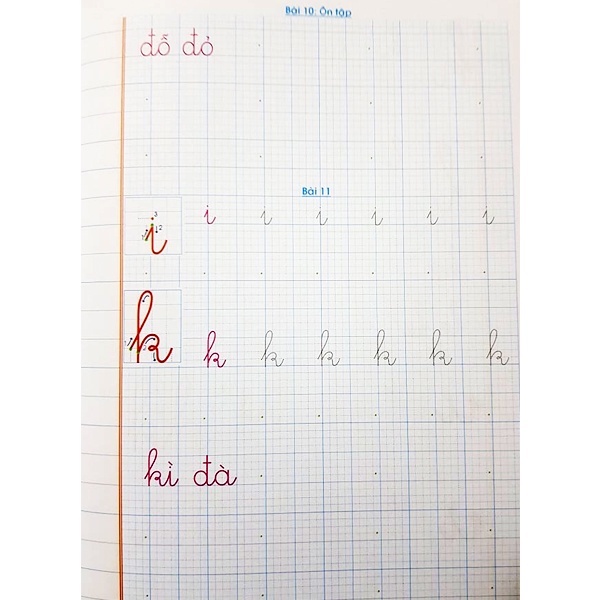 Bài 10: Ôn tập
đỗ đỏ
Bài 11
i i i i i i i
k k k k k k k
kì đà